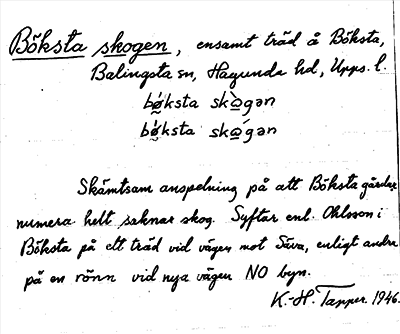 Böksta skogen, ensamt träd å Böksta,
Balingsta sn, Hagunda hd, Upps. l.
bø̀ksta skògən
bø̀ksta skógən
Skämtsam anspelning på att Böksta gårdar
numera helt saknar skog. Syftar enl. Ohlsson i
Böksta på ett träd vid vägen mot Säva, enligt andra
på en rönn vid nya vägen NO byn.
K.-H. Tapper. 1946.